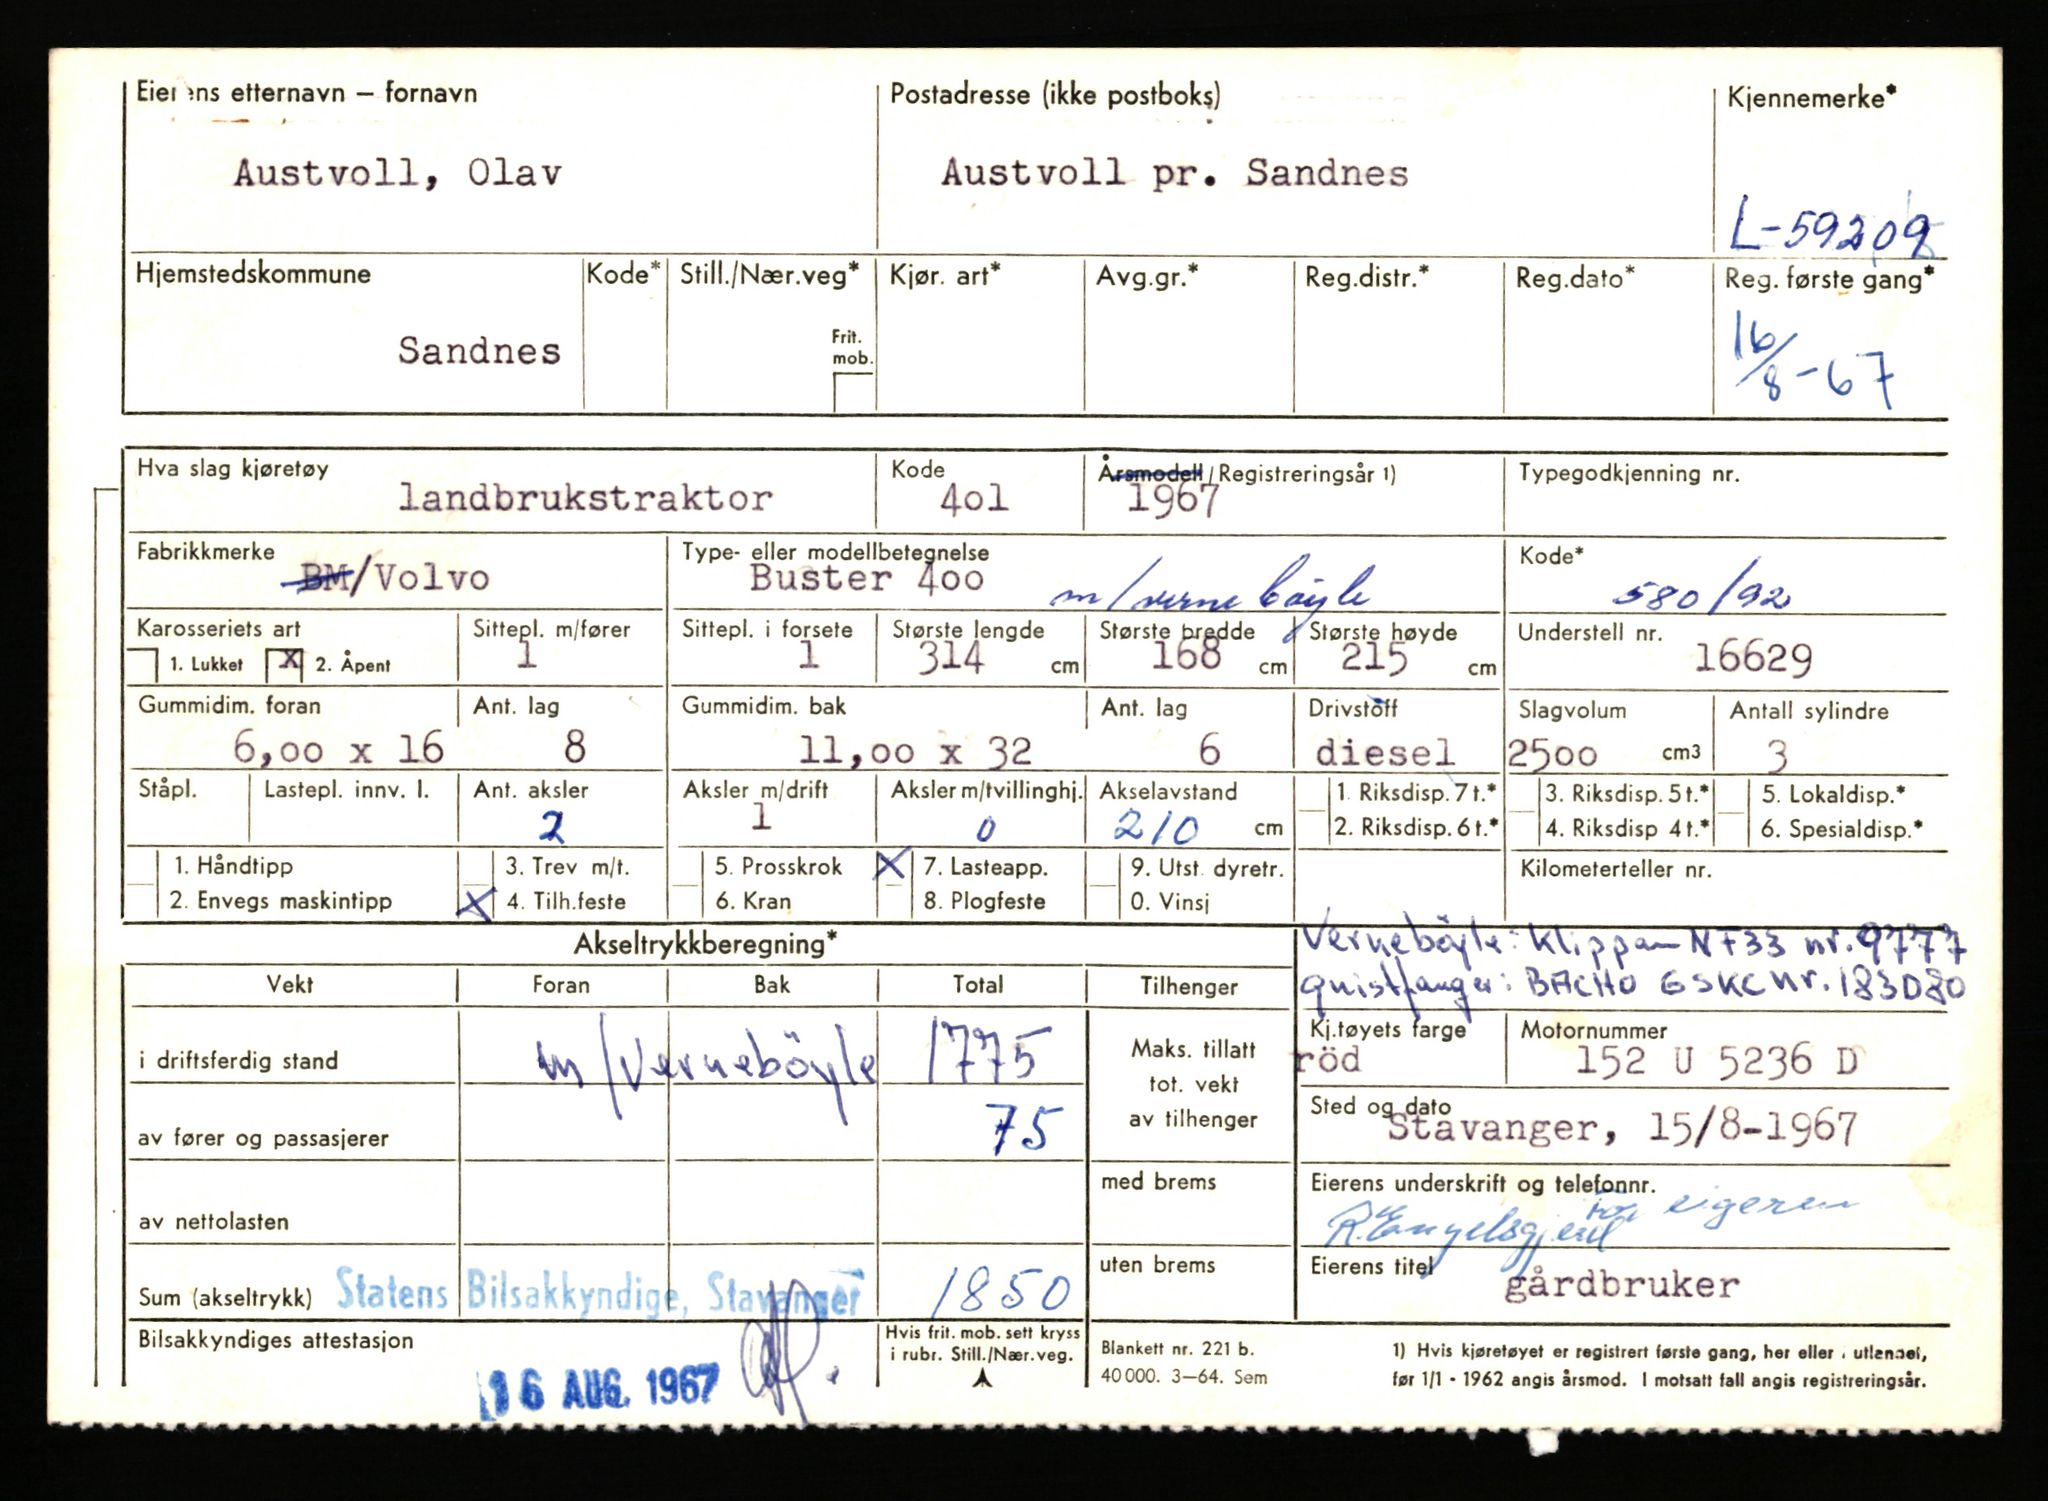 Eierens etternavn – fornavn
Postadresse (ikke postboks)
Kjennemerke*
Austvoll, Olav
Austvoll pr. Sandnes
L-59209
Hjemstedskommune
Kode*
Still./Nær.veg*
Kjør. art*
Avg.gr.*
Reg.distr.*
Reg.dato*
Reg. første gang*
Sandnes
Frit.
mob.
16/8-67
Hva slag kjøretøy
Kode
Årsmodell/Registreringsår 1)
Typegodkjenning nr.
landbrukstraktor
4o1
1967
Fabrikkmerke
Type- eller modellbetegnelse
Kode*
BM/Volvo
Buster 4oo
m/vernebøyle
580/92
Karosseriets art
Sittepl. m/fører
Sittepl. i forsete
Største lengde
Største bredde
Største høyde
Understell nr.
1. Lukket
x
2. Åpent
1
1
314 cm
168 cm
215 cm
16629
Gummidim. foran
Ant. lag
Gummidim. bak
Ant. lag
Drivstoff
Slagvolum
Antall sylindre
6,oo x 16
8
11,oo x 32
6
diesel
25oo cm3
3
Ståpl.
Lastepl. innv. l.
Ant. aksler
Aksler m/drift
Aksler m/tvillinghj.
Akselavstand
1. Riksdisp. 7 t.*
3. Riksdisp. 5 t.*
5. Lokaldisp.*
2
1
0
210 cm
2. Riksdisp. 6 t.*
4. Riksdisp 4 t.*
6. Spesialdisp.*
1. Håndtipp
3. Trev m/t.
5. Prosskrok
X 7. Lasteapp.
9. Utst. dyretr.
Kilometerteller nr.
2. Envegs maskintipp
X 4. Tilh.feste
6. Kran
8. Plogfeste
0. Vinsj
Akseltrykkberegning*
Verneböyle: Klippan NF33 nr. 9777
gnistfanger: BACHO GSKC nr. 183080
Vekt
Foran
Bak
Total
Tilhenger
Kj.tøyets farge
Motornummer
i driftsferdig stand
m/Verneböyle
1775
Maks. tillatt
tot. vekt
av tilhenger
röd
152 U 5236 D
Sted og dato
Stavanger, 15/8-1967
av fører og passasjerer
75
med brems
Eierens underskrift og telefonnr.
For eigeren
av nettolasten
uten brems
Eierens titel
gårdbruker
Sum (akseltrykk)
Statens Bilsakkyndige, Stavanger
1850
Bilsakkyndiges attestasjon
16 AUG. 1967
Hvis frit. mob. sett kryss
i rubr. Still./Nær.veg.
Blankett nr. 221 b.
40 000. 3—64. Sem
1) Hvis kjøretøyet er registrert første gang, her eller i utlandet,
før 1/1 - 1962 angis årsmod. I motsatt fall angis registreringsår.